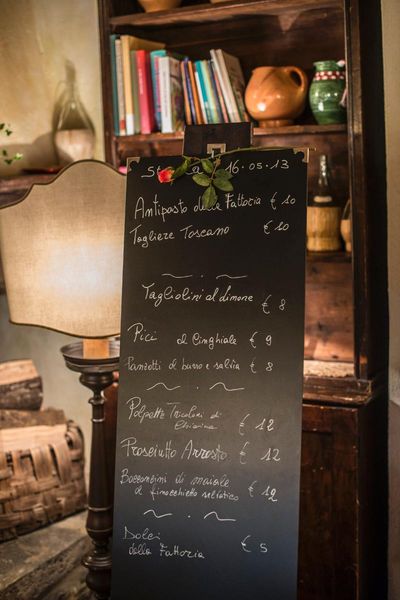 16.05.13
Antipasto della Fattoria € 10
Tagliere Toscano € 10
Tagliolini al limone € 8
Pici al Cinghiale € 9
Panzotti al burro e salvia € 8
Polpette Tricolori di
Chianina € 12
Prosciutto Arrosto € 12
Bocconcini di maiale
al finocchietto selvatico € 12
Dolci
della Fattoria € 5